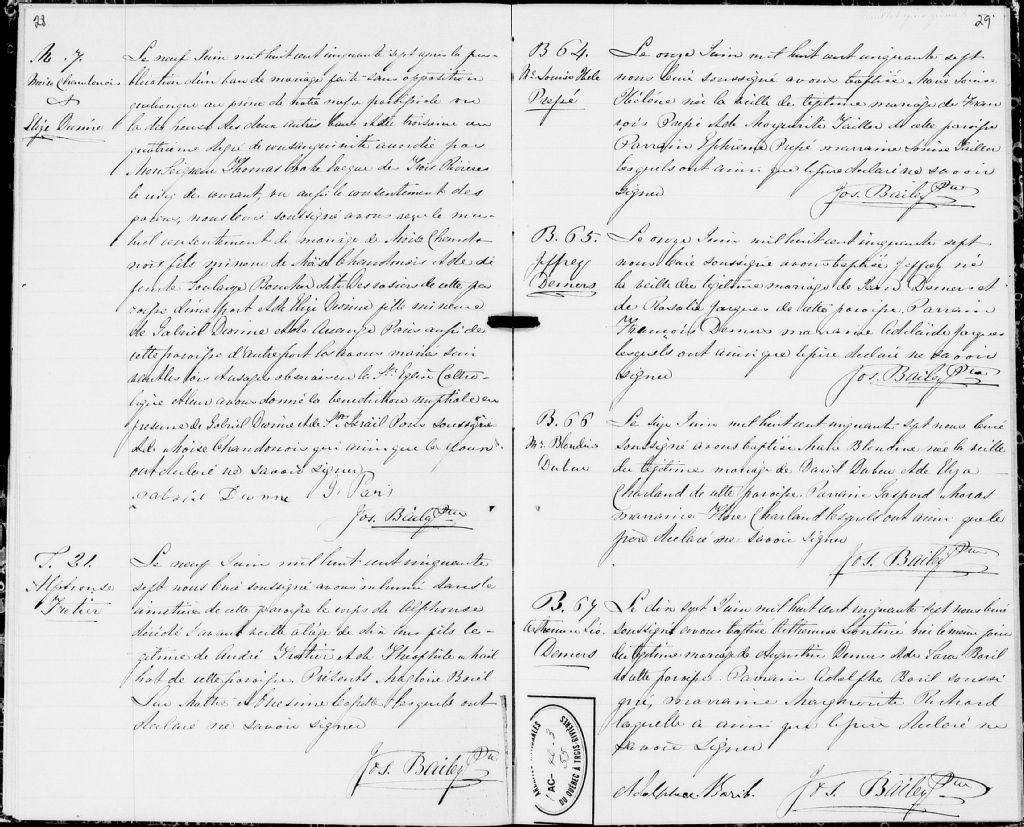 28
M. 7
Moïse Chandonois
&
Elize Divine
Le neuf Juin mil huit cent cinquante sept après la pu-
blication d'un ban de mariage faite sans opposition
quelconque au prône de notre messe paroissiale vu
la dispense des deux autres bans et du troisième au
quatrième degré de consanguinité accordée par
Monseigneur Thomas Cooke Evêque de Trois Rivières
le cinq du courant, vu aussi le consentement des
parens, nous Curé soussigné avons reçu le mu-
tuel consentement de mariage de Moïse Chando-
nois fils mineur de Moïse Chandonois et de dé
funte Soulange Bouchard dit Desrosiers de cette pa
roisse d'une part et de Elize Divine fille mineure
de Gabriel Divine et de Paris aussi de
cette paroisse d'autre part les avons mariés suiv
vant les lois et usages observés en la Ste Eglise Catho-
lique et leur avons donné la bénédiction nuptiale en
présence de Gabriel Divine et de Israël Paris soussignés
et de Moïse Chandonois qui ainsi que
ont déclaré ne savoir signer
J. Paris
Jos. Bailey Ptre
S. 21.
Alphonse
Trotier
Le neuf Juin mil huit cent cinquante
sept nous Curé soussigné avons inhumé dans le
cimetière de cette paroisse le corps de Alphonse
décédé l'avant veille à l'âge de dix ans fils lé-
gitime de André Trotier et de Théophile
de cette paroisse. Présents Magloire Baril
Luc Mathe et Onesime lesquels ont
déclaré ne savoir signer
Jos. Bailey Ptre
29
B 64.
Me Louise Hele
Prepé
Le onze Juin mil huit cent cinquante sept
nous Curé soussigné avons baptisé Marie Louise
Hélène née la veille du légitime mariage de Fran
çois Prepé et de Marguerite Tailler de cette paroisse
Parrain Ephrem Prepé marraine Louise Tailler
lesquels ont ainsi que le père déclaré ne savoir
signer
Jos. Bailey Ptre
B. 65.
Jeffrey
Demers
Le onze Juin mil huit cent cinquante sept
nous Curé soussigné avons baptisé Jeffrey né
la veille du légitime mariage de Demers et
de Rosalie Jacques de cette paroisse. Parrain
François Demers marraine Adelaïde Jacques
lesquels ont ainsi que le père déclaré ne savoir
signer
Jos. Bailey Ptre
B. 66
Me Blandine
Dubuc
Le Juin mil huit cent cinquante sept nous Curé
soussigné avons baptisé Marie Blandine née la veille
du légitime mariage de David Dubuc et de Eliza
Charland de cette paroisse. Parrain Gaspard Moras
marraine Flore Charland lesquels ont ainsi que le
père déclaré ne savoir signer
Jos. Bailey Ptre
B. 67
Demers
Le dix sept Juin mil huit cent cinquante sept nous Curé
soussigné avons baptisé né le même jour
du légitime mariage de Augustin Demers et de Sara Baril
de cette paroisse. Parrain Adolphe Baril soussi
gné, marraine Marguerite Richard
laquelle a ainsi que le père déclaré ne
savoir signer
Adolphe Baril.
Jos. Bailey Ptre
ARCHIVES NATIONALES
AC-
DU QUÉBEC À TROIS-RIVIÈRES